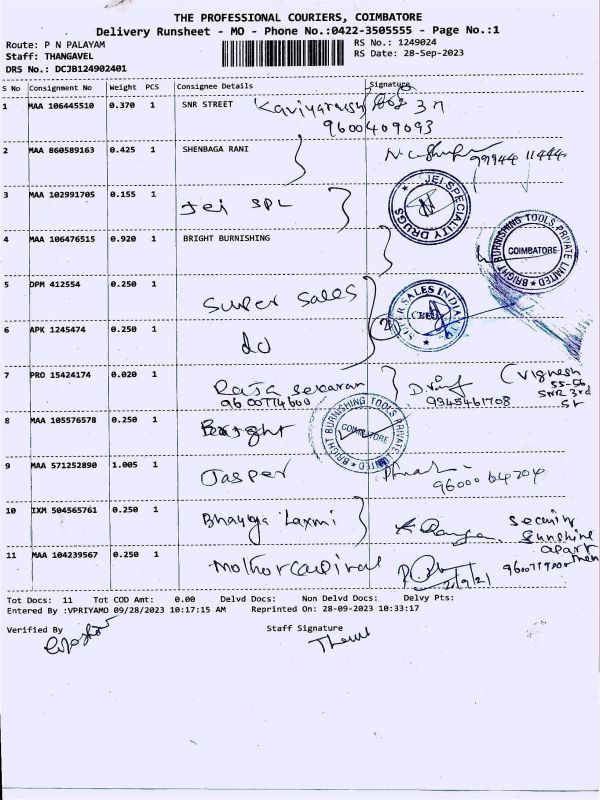 THE PROFESSIONAL COURIERS, COIMBATORE
Delivery Runsheet - MO - Phone No.:0422-3505555 - Page No.:1
Route: P N PALAYAM
Staff: THANGAVEL
DRS No.: DCJB124902401
RS No.: 1249024
RS Date: 28-Sep-2023
S No Consignment No Weight PCS Consignee Details Signature
1 MAA 106445510 0.370 1 SNR STREET
9600409693
2 MAA 860589163 0.425 1 SHENBAGA RANI 99944 11444
3 MAA 102991705 0.155 1 Jei SPL
JEI SPECIALITY DRUGS
4 MAA 106476515 0.920 1 BRIGHT BURNISHING
BRIGHT BURNISHING TOOLS PRIVATE LIMITED
COIMBATORE
5 DPM 412554 0.250 1 Super Sales
2
SUPER SALES INDIA LTD
CBE
6 APK 1245474 0.250 1 do
7 PRO 15424174 0.020 1 Raja sekaran (Vignesh
9600774600 9945461708 55-56
SNR 3rd
St
8 MAA 105576578 0.250 1 Bright
BRIGHT BURNISHING TOOLS PRIVATE LIMITED
COIMBATORE
9 MAA 571252890 1.005 1 Jasper
9600064704
10 IXM 504565761 0.250 1 Bhagya Laxmi Security
Sunshine
apart
11 MAA 104239567 0.250 1
Tot Docs: 11 Tot COD Amt: 0.00 Delvd Docs: Non Delvd Docs: Delvy Pts:
Entered By :VPRIYAMO 09/28/2023 10:17:15 AM Reprinted On: 28-09-2023 10:33:17
Verified By Staff Signature